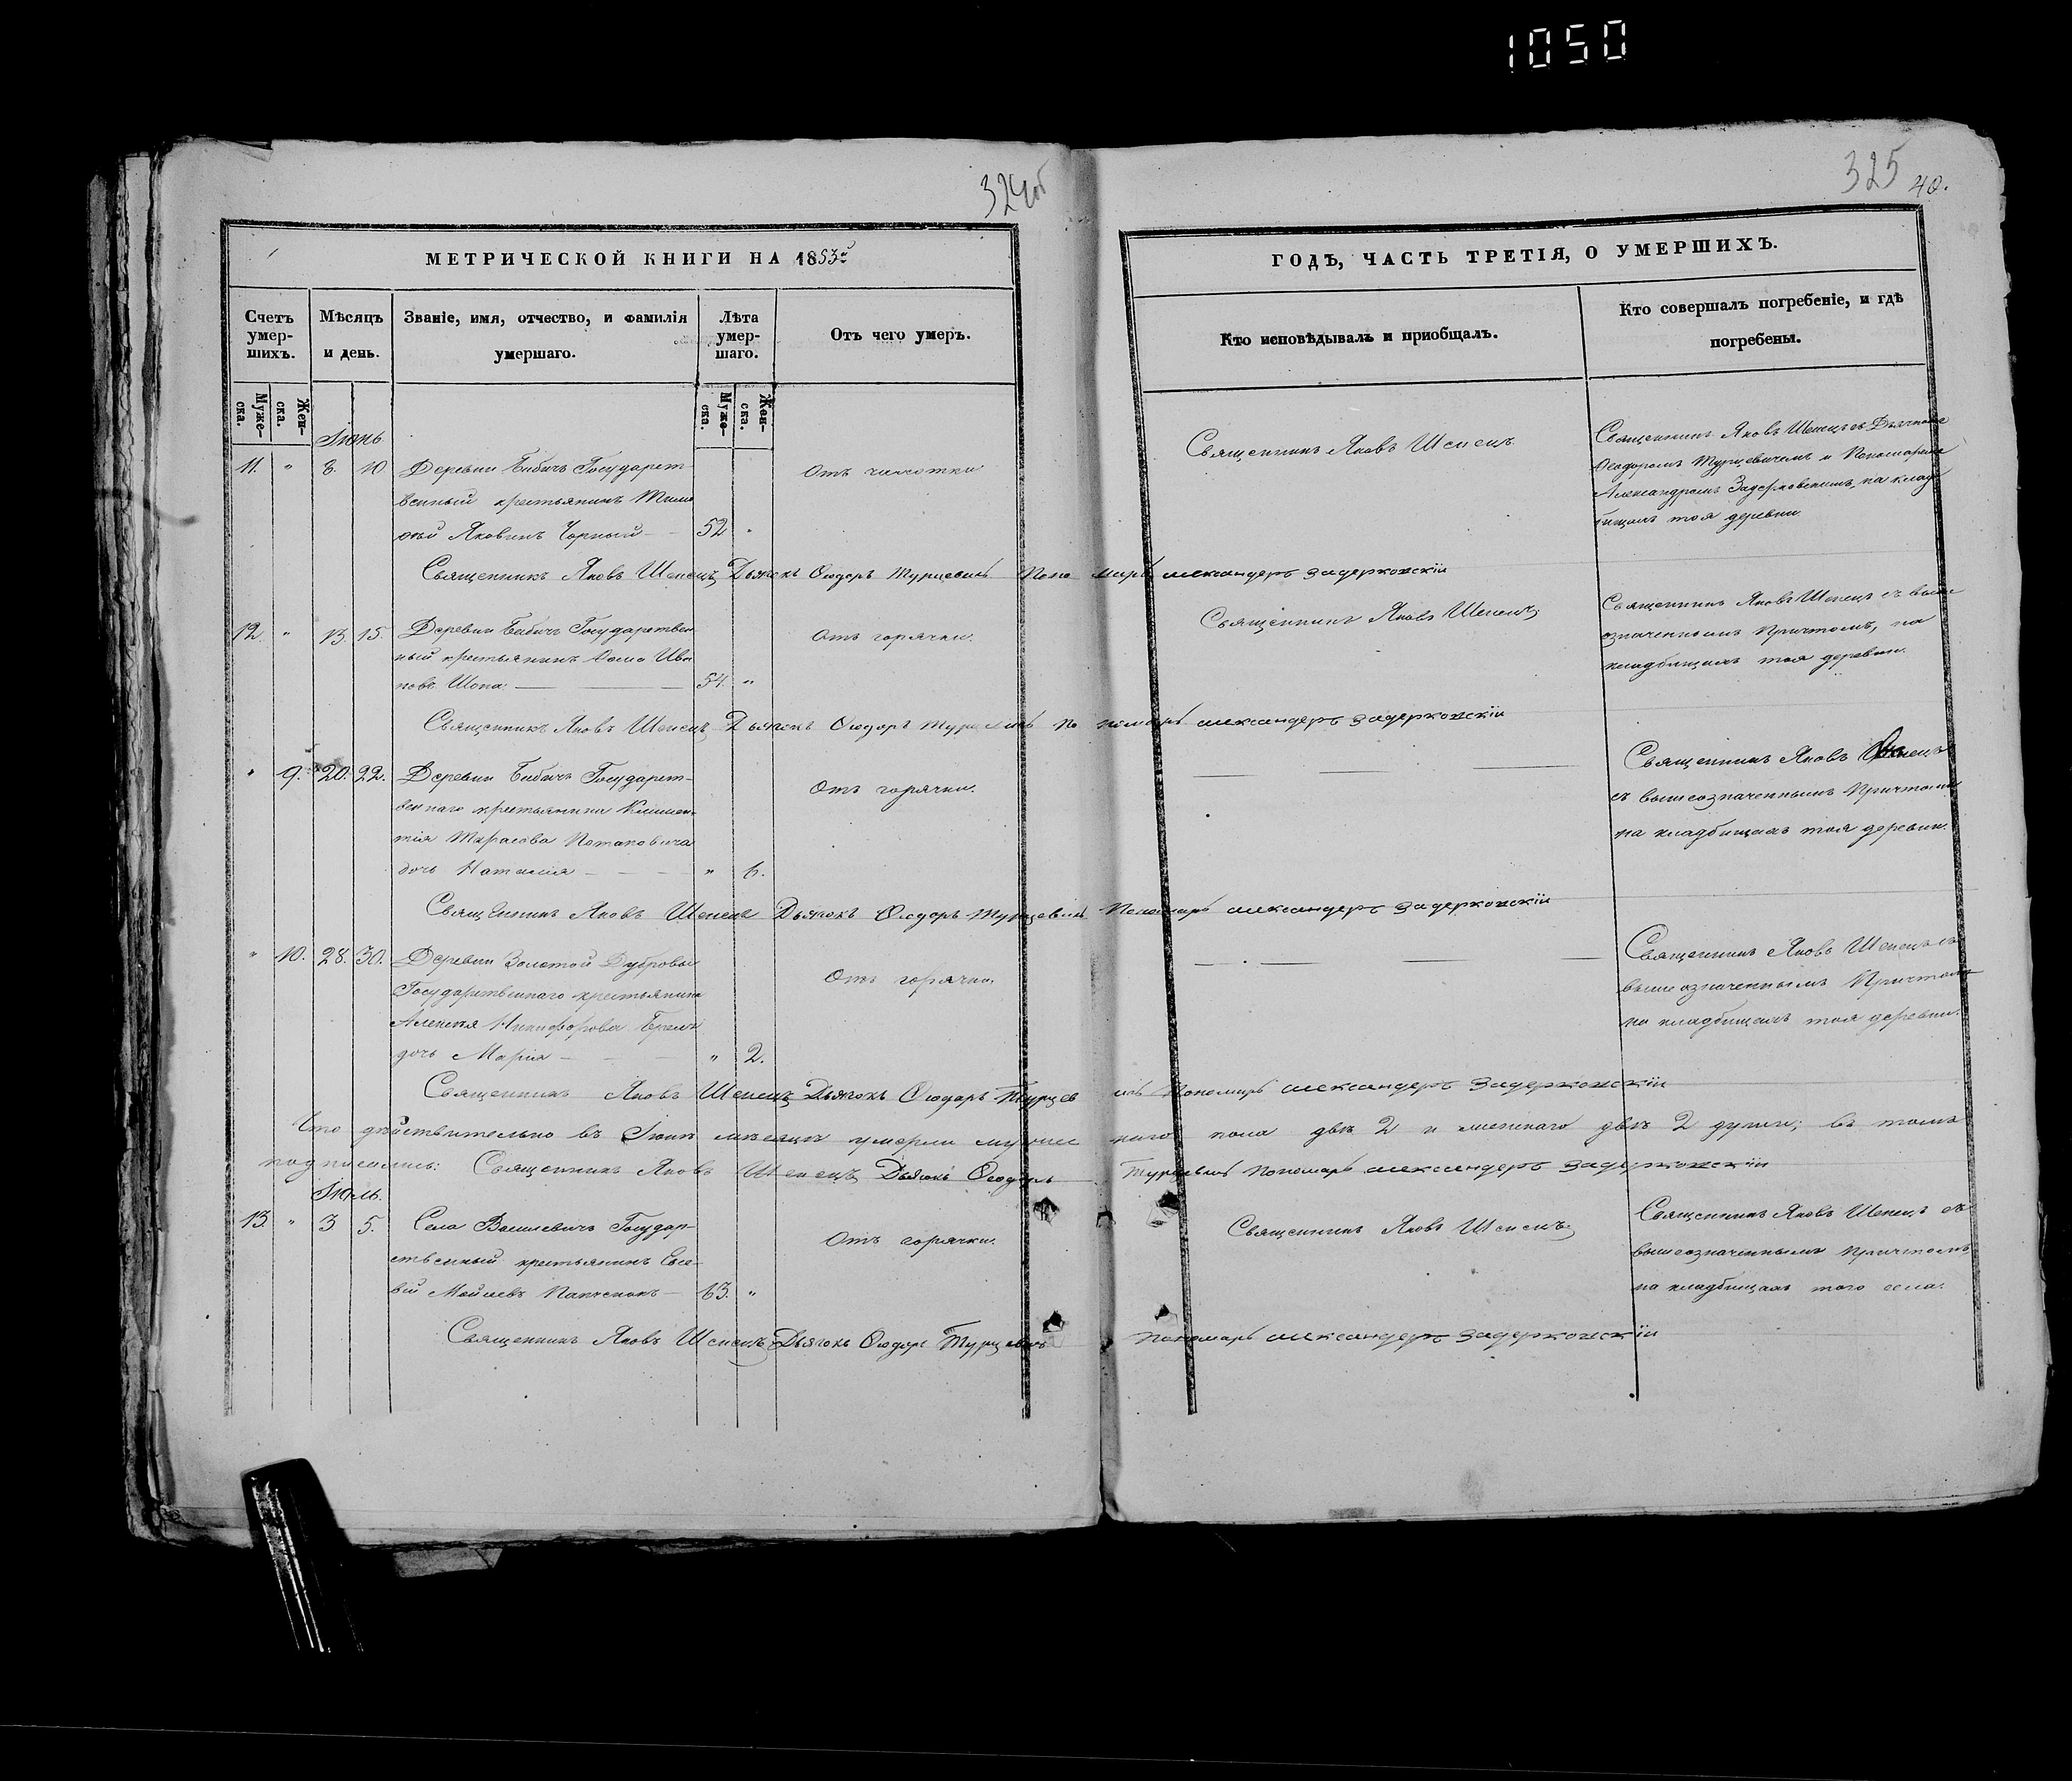 1050
324об
325 40.
МЕТРИЧЕСКОЙ КНИГИ НА 1853й
ГОДЪ, ЧАСТЬ ТРЕТІЯ, О УМЕРШИХЪ.
Счетъ умер-шихъ.
Мѣсяцъ и день.
Званіе, имя, отчество, и фамилія умершаго.
Лѣта умер-шаго.
Отъ чего умеръ.
Кто исповѣдывалъ и приобщалъ.
Кто совершалъ погребеніе, и гдѣ погребены.
Муже-ска. Жен-ска.
Муже-ска. Жен-ска.
Іюнь
11. " 8. 10 Деревни Бибичъ Государст-
венный крестьянинъ Тимо
фѣй Яковинъ Чорный 52 "
Отъ чахотки
Священникъ Яковъ Шепецъ
Священникъ Яковъ Шепецъ съ Дьячкомъ
Феодоромъ Турцевичемъ и Пономаремъ
Александромъ Задерковскимъ, на клад-
бищахъ тоя деревни.
Священникъ Яковъ Шепецъ Дьячокъ Ѳеодоръ Турцевичъ Пономарь Александеръ Задерковскій
12. " 13. 15. Деревни Бибичъ Государствен
ный крестьянинъ Ѳома Ива
новъ Шопа 54. "
Отъ горячки.
Священникъ Яковъ Шепецъ
Священникъ Яковъ Шепецъ съ выше
означеннымъ Причтомъ, на
кладбищахъ тоя деревни.
Священникъ Яковъ Шепецъ Дьячокъ Ѳеодоръ Турцевичъ Пономарь Александеръ Задерковскій
" 9. 20. 22. Деревни Бибичъ Государст-
веннаго крестьянина Климен-
тія Тарасова Потаповича
дочь Наталія " 6.
Отъ горячки.
Священникъ Яковъ Шепецъ
съ вышеозначеннымъ Причтомъ
на кладбищахъ тоя деревни.
Священникъ Яковъ Шепецъ Дьячокъ Ѳеодоръ Турцевичъ Пономарь Александеръ Задерковскій
" 10. 28. 30. Деревни Золотой Дубровы
Государственнаго крестьянина
Алексѣя Никифорова
дочь Марія " 2.
Отъ горячки.
Священникъ Яковъ Шепецъ съ
вышеозначеннымъ Причтомъ
на кладбищахъ тоя деревни.
Священникъ Яковъ Шепецъ Дьячокъ Ѳеодоръ Турцевичъ Пономарь Александеръ Задерковскій
Что дѣйствительно въ Іюнѣ мѣсяцѣ умерли мужескаго пола двѣ 2 и женскаго двѣ 2 души; въ томъ
подписались: Священникъ Яковъ Шепецъ Дьячокъ Ѳеодоръ Турцевичъ Пономарь Александеръ Задерковскій
Іюль.
13. " 3 5. Села Василевичъ Государ-
ственный крестьянинъ Евсе-
вій Мойсеевъ 63. "
Отъ горячки.
Священникъ Яковъ Шепецъ
Священникъ Яковъ Шепецъ съ
вышеозначеннымъ Причтомъ
на кладбищахъ того села.
Священникъ Яковъ Шепецъ Дьячокъ Ѳеодоръ Турцевичъ Пономарь Александеръ Задерковскій